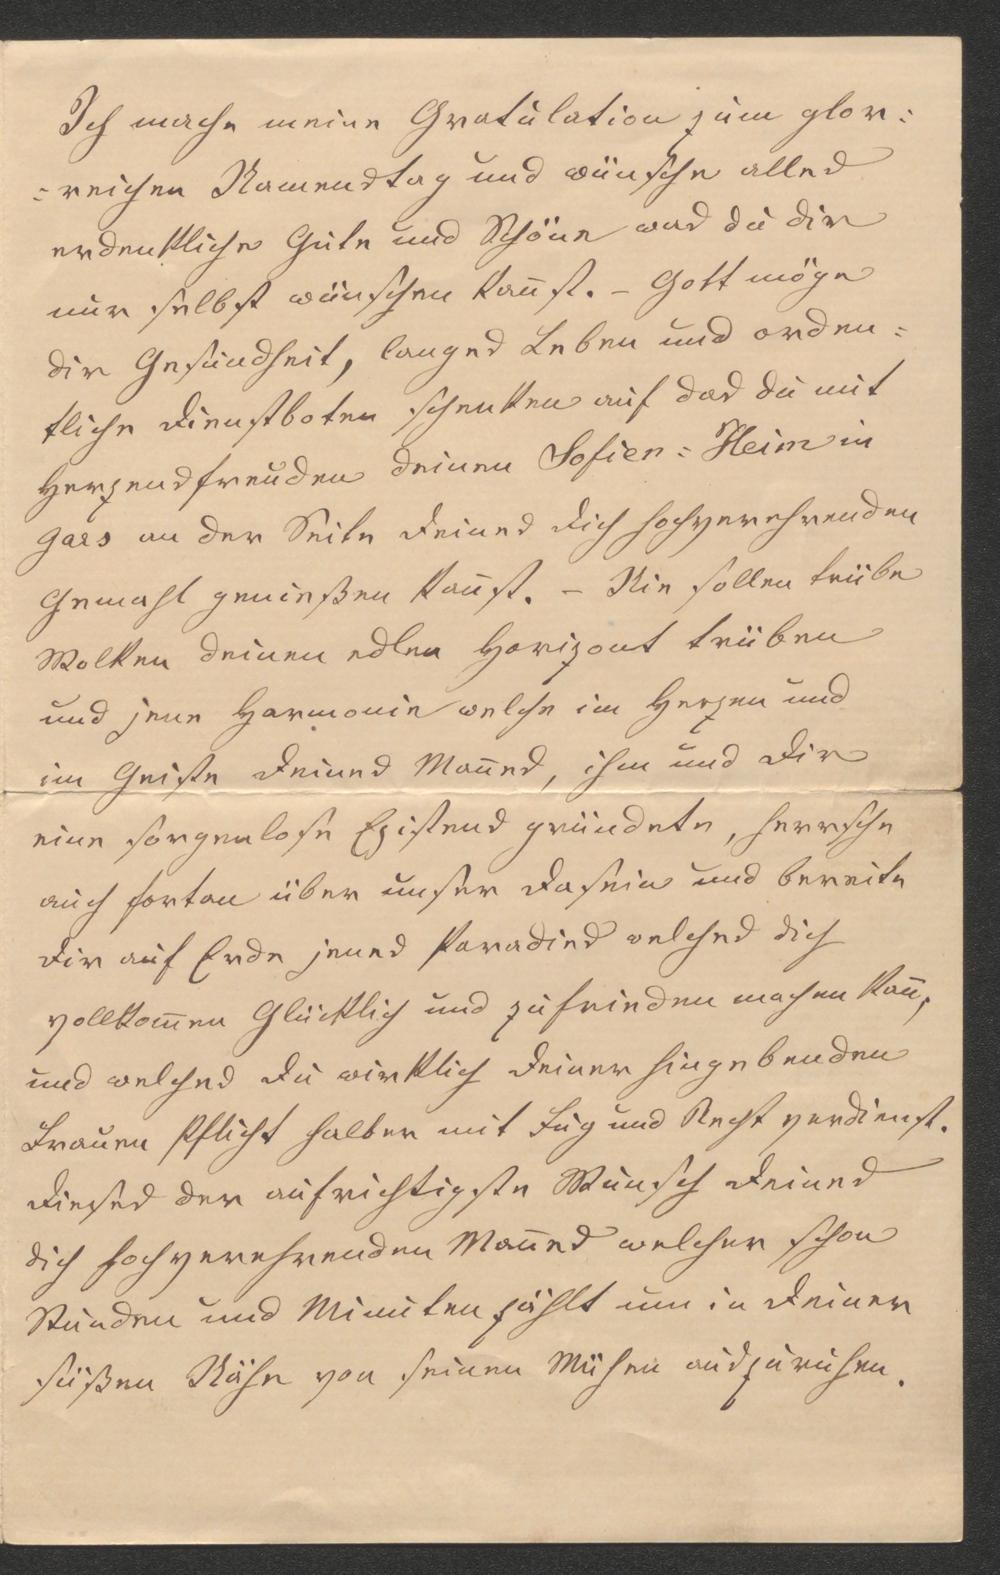 Ich mache meine Gratulation zum glor:
:reichen Namenstag und wünsche alles
erdenkliche Gute und Schöne was du dir
nur selbst wünschen kan̄st. – Gott möge
dir Gesundheit, langes Leben und orden:
tliche Dienstboten schenken auf das du mit
Herzensfreuden deinen Sofien: Heim in
Gars an der Seite Deines Dich hochverehrenden
Gemahl genießen kan̄st. – Nie sollen trübe
Wolken deinen edlen Horizont trüben
und jene Harmonie welche im Herzen und
im Geiste Deines Man̄es, ihm und Dir
eine sorgenlose Existens gründete, herrsche
auch fortan über unser Dasein und bereite
Dir auf Erde jenes Paradies welches dich
vollkom̄en Glücklich und zufrieden machen kan̄,
und welches Du wirklich Deiner hingebenden
Frauen Pflicht halber mit Fug und Recht verdienst.
Dieses der aufrichtigste Wunsch Deines
dich hochverehrenden Man̄es welcher schon
Stunden und Minuten zählt um in Deiner
süßen Nähe von seinen Mühen auszuruhen.